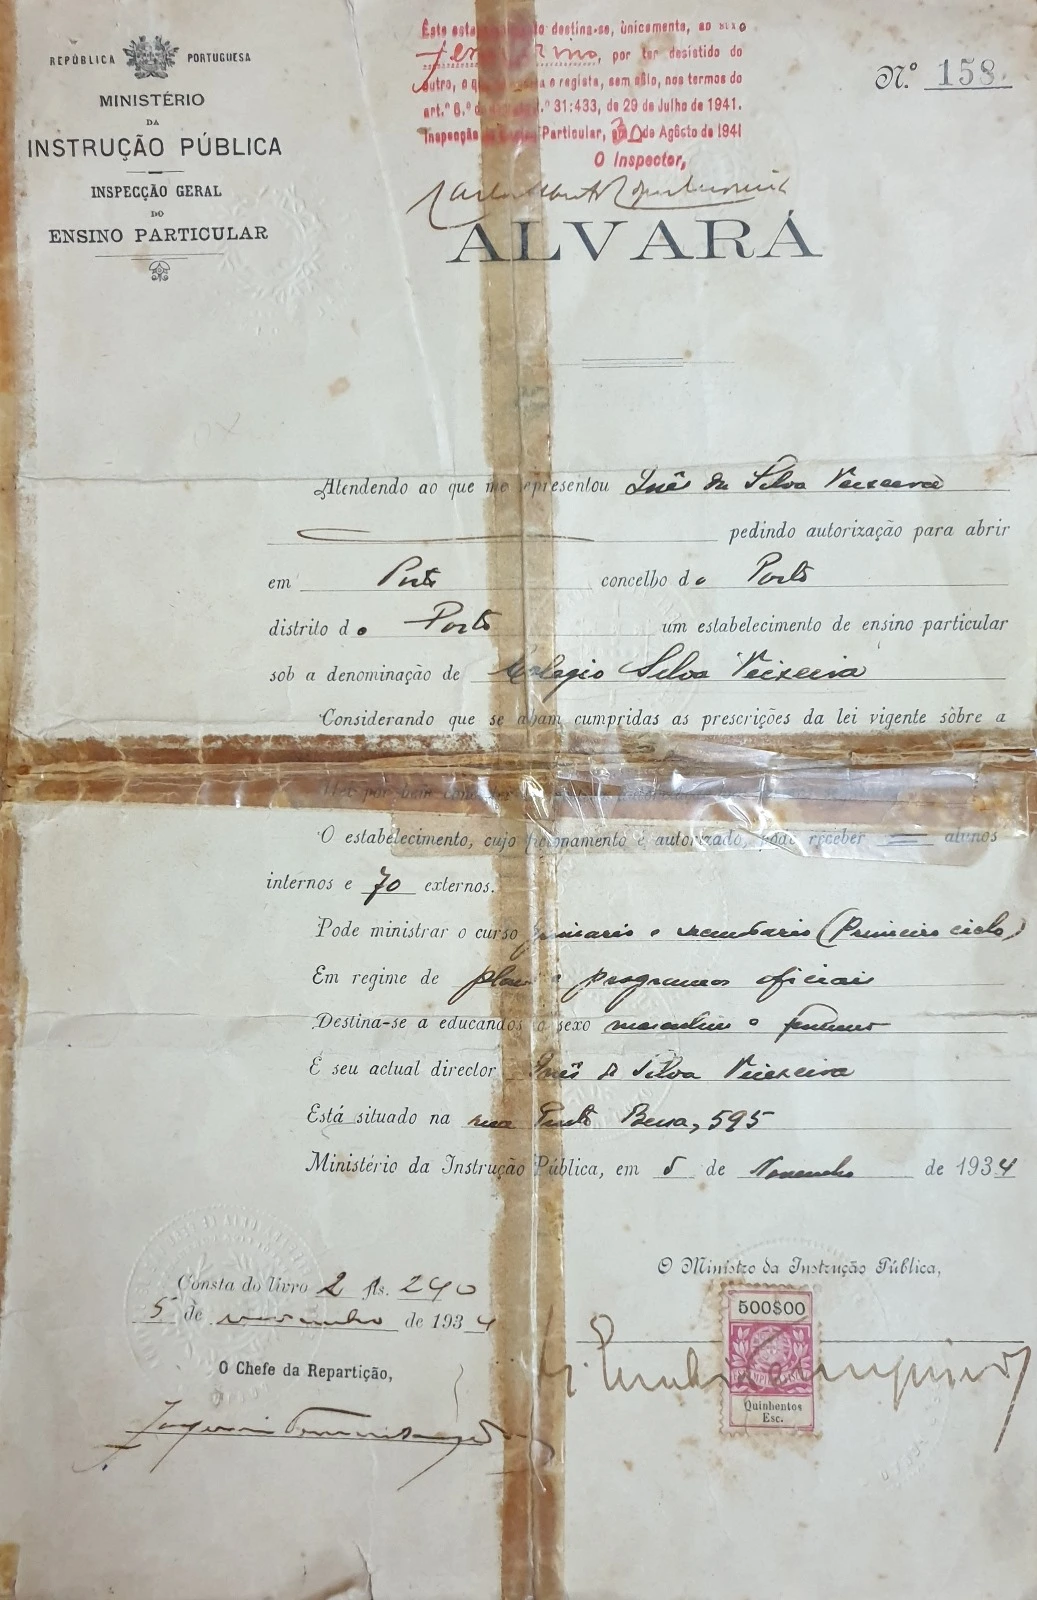 REPÚBLICA PORTUGUESA
MINISTÉRIO
DA
INSTRUÇÃO PÚBLICA
INSPECÇÃO GERAL
DO
ENSINO PARTICULAR
Este destina-se, ùnicamente, ao sexo
feminino, por ter desistido do
outro, o que e regista, sem sêlo, nos termos do
art.º 6.º do n.º 31:433, de 29 de Julho de 1941.
Inspecção do Particular, 30 de Agôsto de 1941
O Inspector,
N.º 158
ALVARÁ
Atendendo ao que me representou Inês da Silva Teixeira
pedindo autorização para abrir
em Porto concelho do Porto
distrito do Porto um estabelecimento de ensino particular
sob a denominação de Colegio Silva Teixeira
Considerando que se acham cumpridas as prescrições da lei vigente sôbre a
Hei por bem
O estabelecimento, cujo funcionamento é autorizado, pode receber alunos
internos e 70 externos.
Pode ministrar o curso primario e secundario (Primeiro ciclo)
Em regime de planos e programas oficiais
Destina-se a educandos do sexo masculino e feminino
É seu actual director Inês da Silva Teixeira
Está situado na rua Pinto Bessa, 595
Ministério da Instrução Pública, em 5 de Novembro de 1934
Consta do livro 2 fls. 240
5 de novembro de 1934
O Chefe da Repartição,
O Ministro da Instrução Pública,
500$00
Quinhentos
Esc.